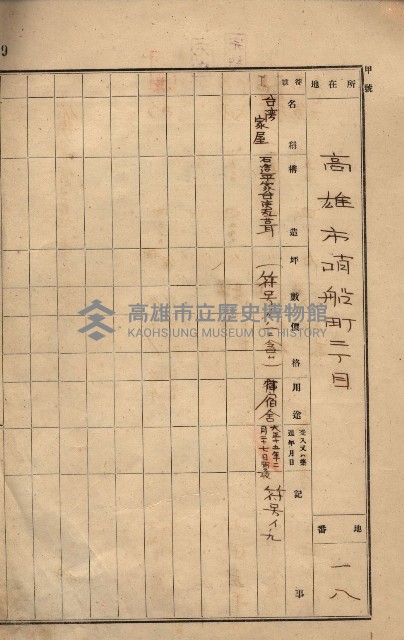 甲號
所在地
高雄市哨船町二丁目
地番
一八
符號
名稱
構造
坪數
價格
用途
受入又ハ舉
匿年月日
記事
台湾家屋
石造平家台湾瓦葺
(符号イノ一ニ含ム)
宿舍
大正十五年二
月二十七日
符号イノ九
9
高雄市立歷史博物館
KAOHSIUNG MUSEUM OF HISTORY